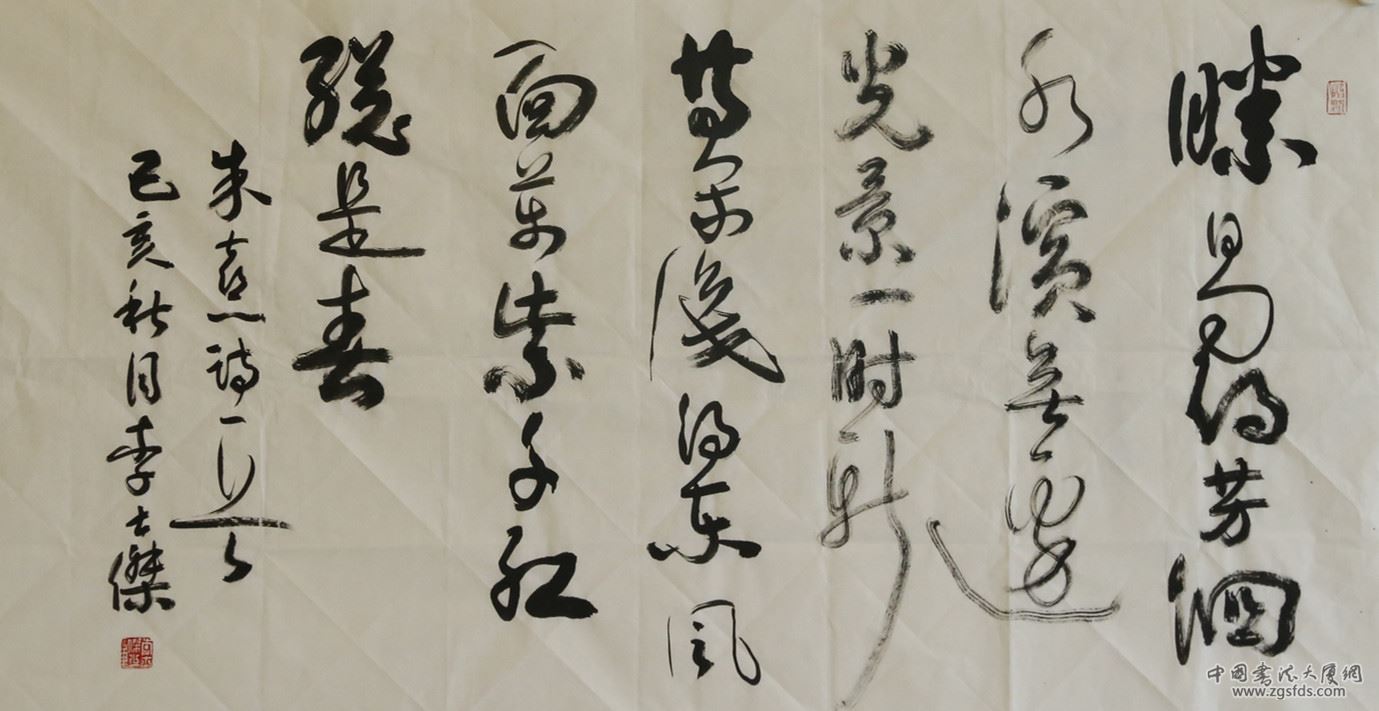 勝日尋芳泗
水濱無邊
光景一时新
等閒識得東風
面萬紫千红
總是春
朱熹詩一首
己亥秋月李士傑
中國書法大厦網
www.zgsfds.com